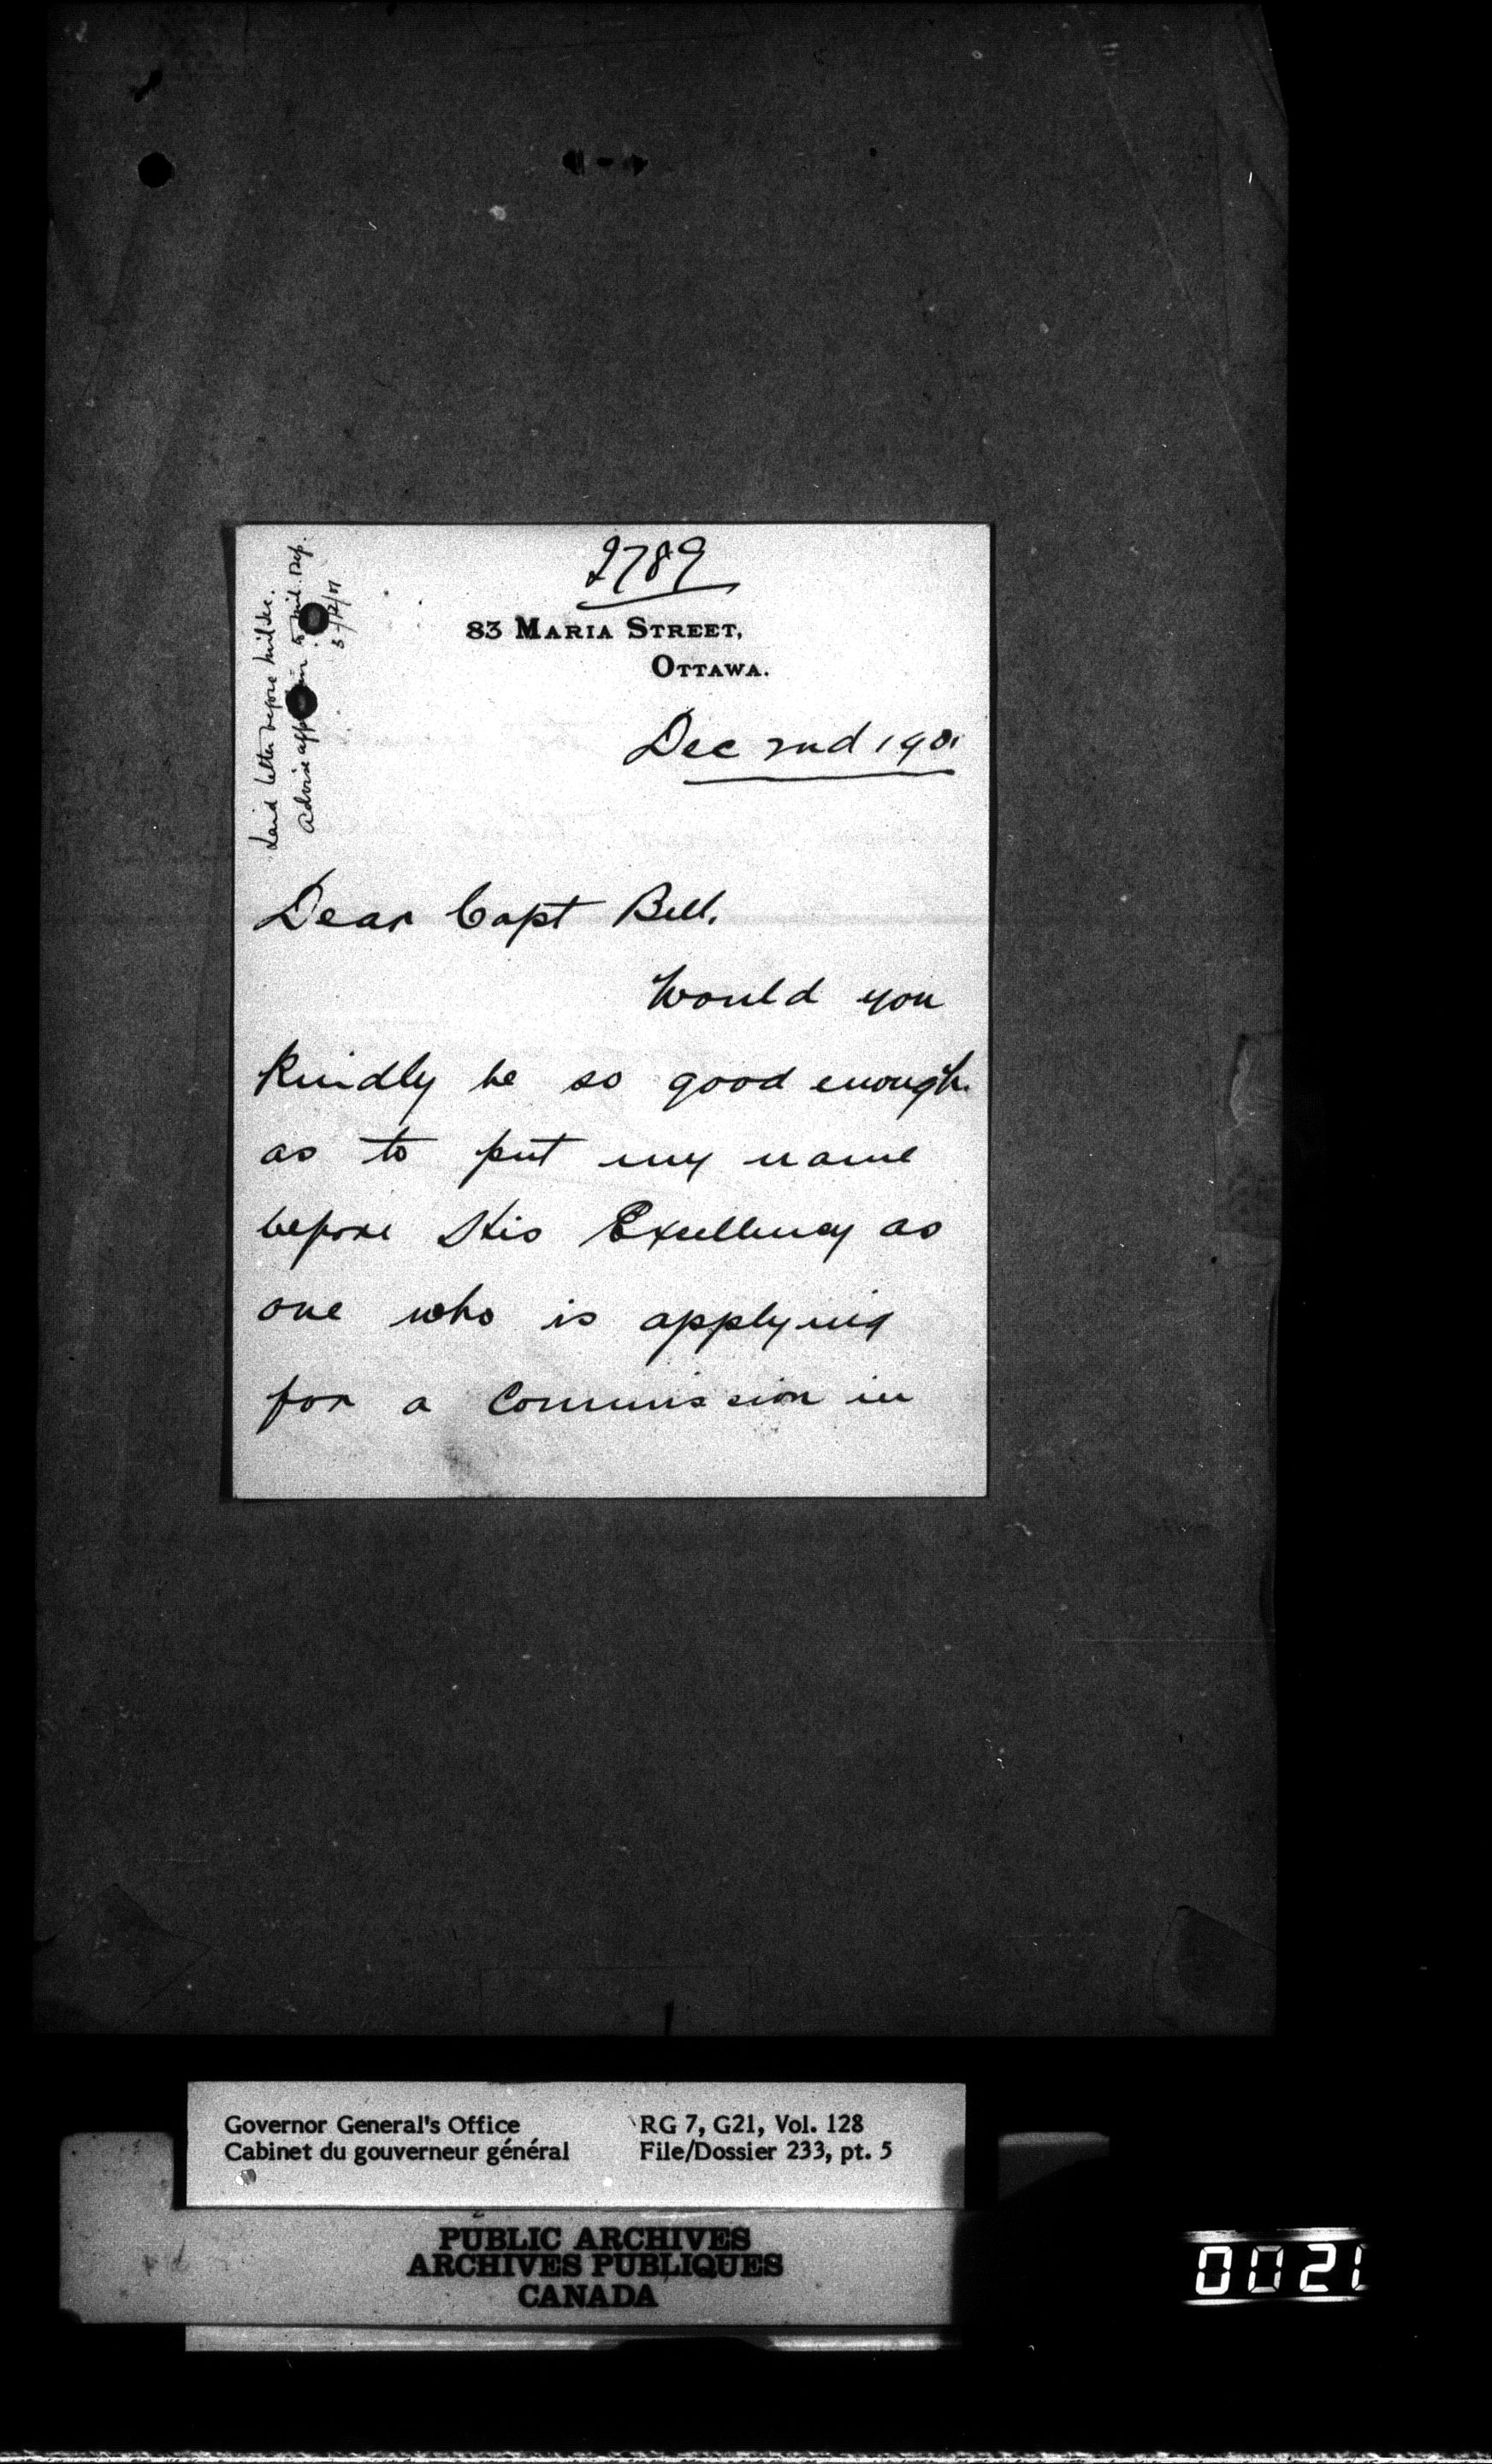 2789
83 MARIA STREET,
OTTAWA.
Dec 2nd 1901
Laid letter before Mil Sec.
Advise to Mil. Dep.
3/12/01
Dear Capt Bell,
Would you
Kindly be so good enough
as to put my name
before His Excellency as
one who is applying
for a Commission in
Governor General's Office
Cabinet du gouverneur général
RG 7, G21, Vol. 128
File/Dossier 233, pt. 5
PUBLIC ARCHIVES
ARCHIVES PUBLIQUES
CANADA
0021